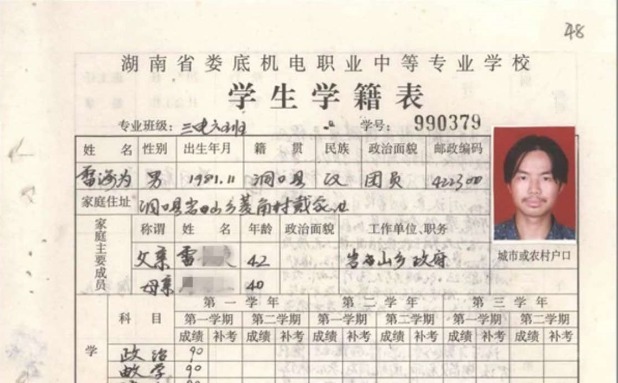 48
湖南省娄底机电职业中等专业学校
学生学籍表
专业班级: 三电六班 学号: 990379
姓名 性别 出生年月 籍贯 民族 政治面貌 邮政编码
雷海为 男 1981.11 洞口县 汉 团员 422300
家庭住址 洞口县岩山乡菱角村戴家
家庭主要成员 称谓 姓名 年龄 政治面貌 工作单位、职务
城市或农村户口
父亲 雷 42 岩山乡政府
母亲 40
科目 第一学年 第二学年 第三学年
第一学期 第二学期 第一学期 第二学期 第一学期 第二学期
成绩 补考 成绩 补考 成绩 补考 成绩 补考 成绩 补考 成绩 补考
学
政治 90
数学 90